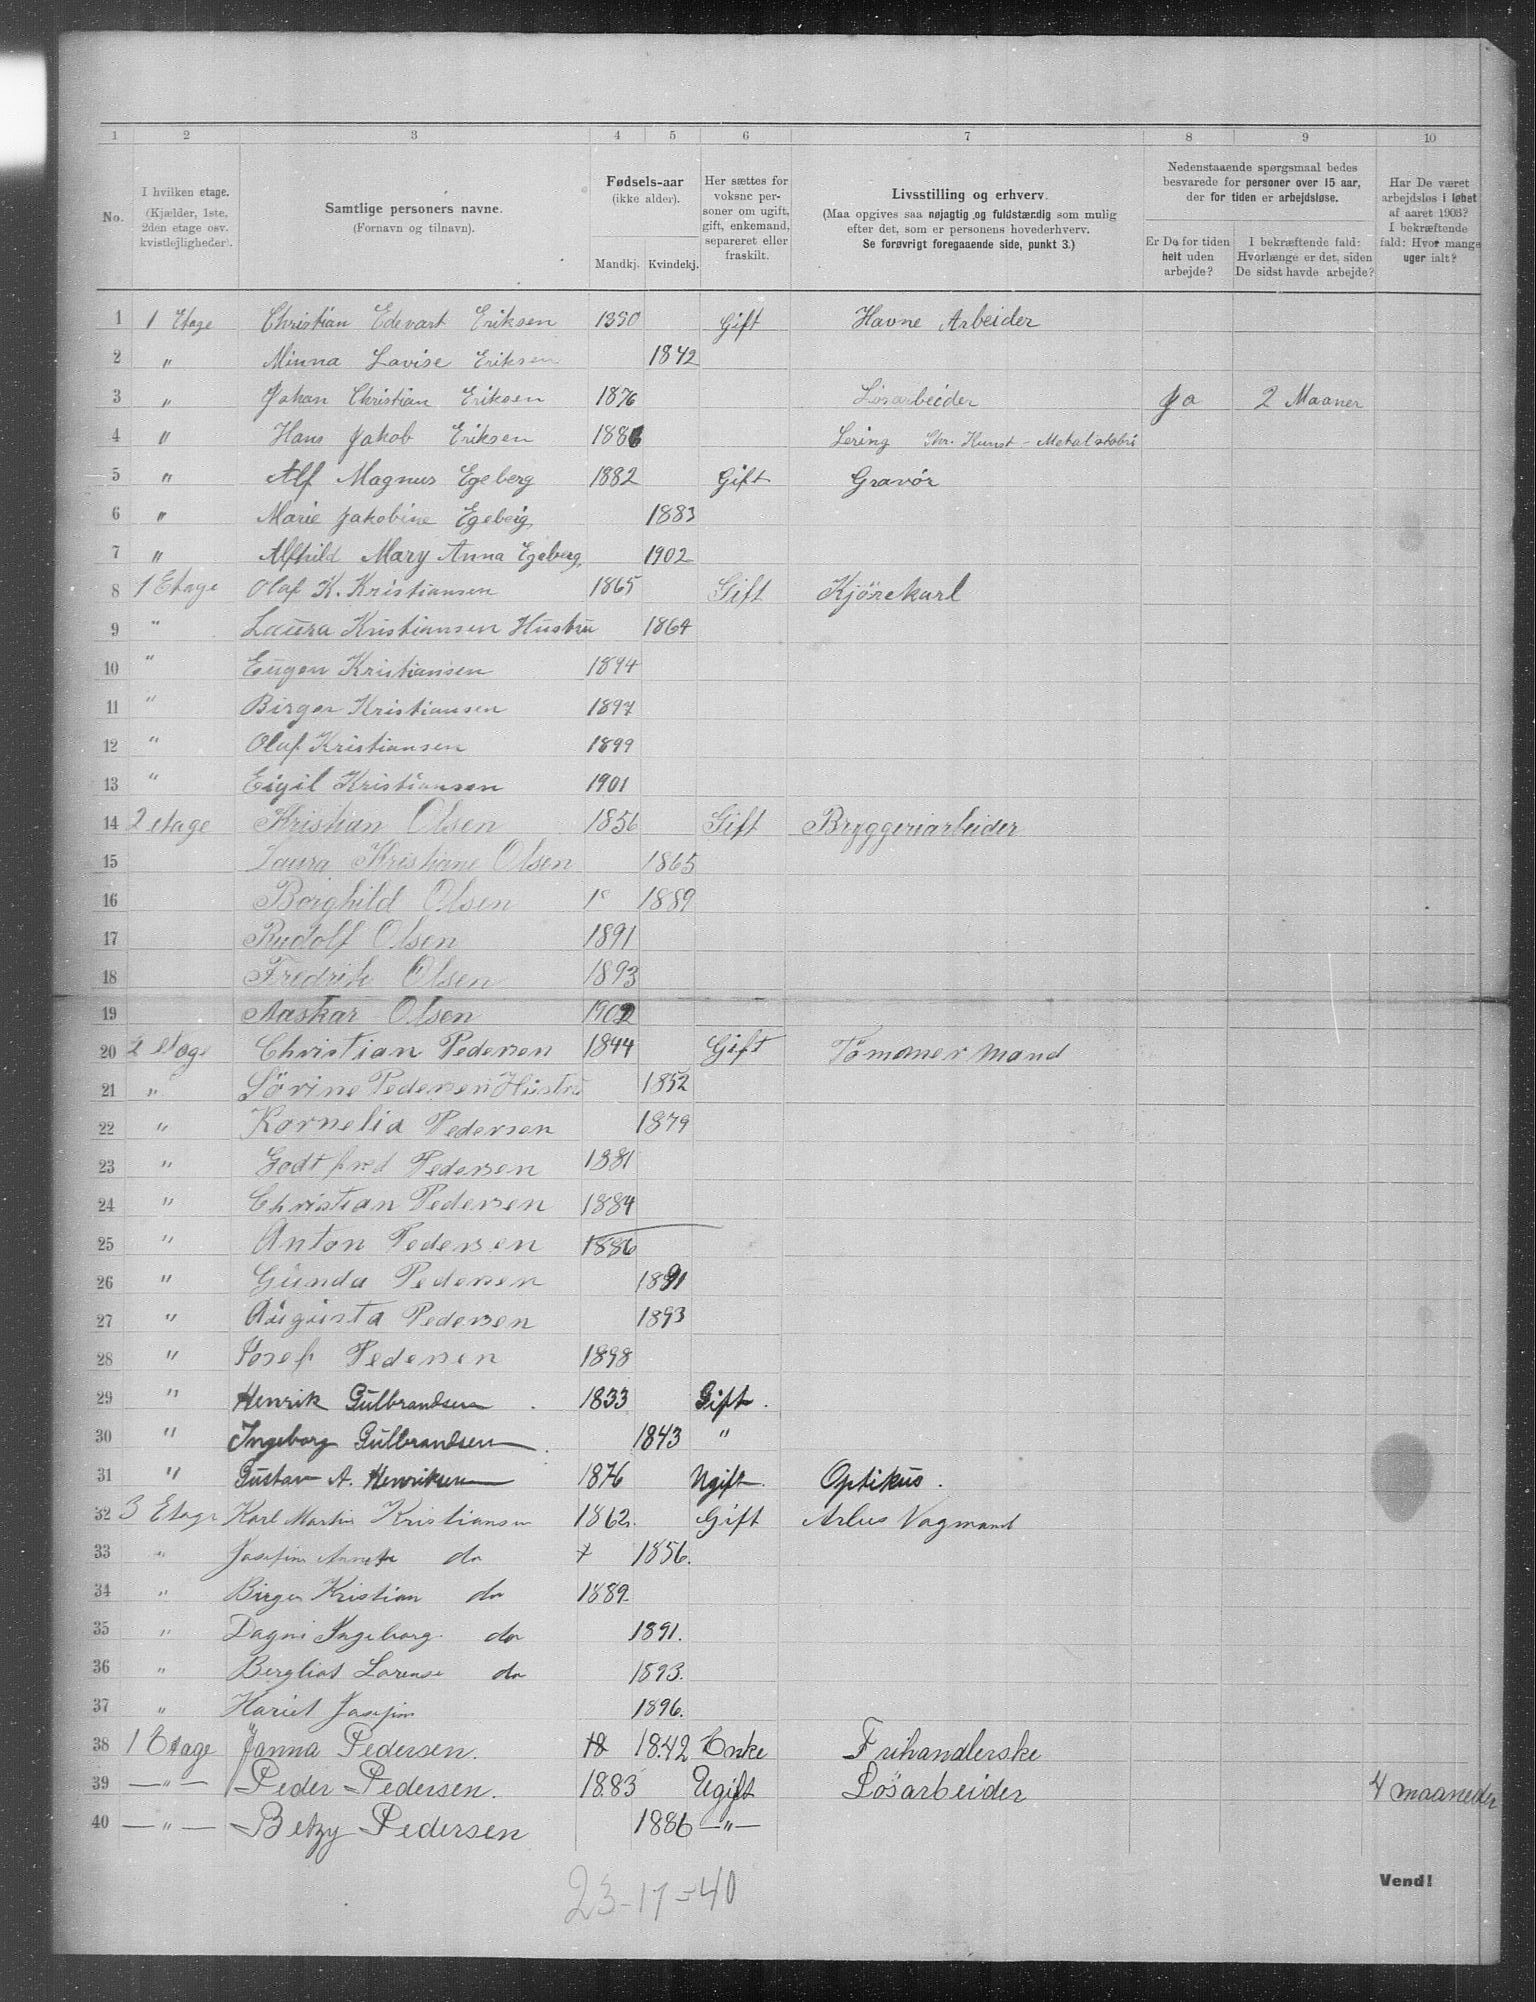 1 2 3 4 5 6 7 8 9 10
No.
I hvilken etage. (Kjælder, 1ste, 2den etage osv. kvistlejligheder).
Samtlige personers navne. (Fornavn og tilnavn).
Fødsels-aar (ikke alder). Mandkj. Kvindekj.
Her sættes for voksne personer om ugift, gift, enkemand, separeret eller fraskilt.
Livsstilling og erhverv. (Maa opgives saa nøjagtig og fuldstændig som mulig efter det, som er personens hovederhverv. Se forøvrigt foregaaende side, punkt 3.)
Nedenstaaende spørgsmaal bedes besvarede for personer over 15 aar, der for tiden er arbejdsløse.
Er De for tiden helt uden arbejde?
I bekræftende fald: Hvorlænge er det, siden De sidst havde arbejde?
Har De været arbejdsløs i løbet af aaret 1903? I bekræftende fald: Hvor mange uger ialt?
1 1 Etage Christian Edevart Eriksen 1850 Gift Havne Arbeider
2 " Minna Lovise Eriksen 1842
3 " Johan Christian Eriksen 1876 Løsarbeider Ja 2 Maaner
4 " Hans Jakob Eriksen 1886 Lering Kunst-Metal
5 " Alf Magnus Egeberg 1882 Gift Gravør
6 " Marie Jakobine Egeberg 1883
7 " Alfhild Mary Anna Egeberg 1902
8 1 Etage Olaf K. Kristiansen 1865 Gift Kjörekarl
9 " Laura Kristiansen Hustru 1864
10 " Eugen Kristiansen 1894
11 " Birger Kristiansen 1897
12 " Olaf Kristiansen 1899
13 " Eigil Kristiansen 1901
14 2 etage Kristian Olsen 1856 Gift Bryggeriarbeider
15 Laura Kristiane Olsen 1865
16 Borghild Olsen 1889
17 Rudolf Olsen 1891
18 Fredrik Olsen 1893
19 Aaskar Olsen 1902
20 2 etage Christian Pedersen 1844 Gift Tömmermand
21 " Sörine Pedersen Hustru 1852
22 " Kornelia Pedersen 1879
23 " Godtfred Pedersen 1881
24 " Christian Pedersen 1884
25 " Anton Pedersen 1886
26 " Gunda Pedersen 1891
27 " Augusta Pedersen 1893
28 " Josef Pedersen 1898
29 " Henrik Gulbrandsen 1833 Gift.
30 " Ingeborg Gulbrandsen 1843 "
31 " Gustav A. Henriksen 1876 Ugift. Optikus.
32 3 Etage Karl Martin Kristiansen 1862. Gift Arbus Vogmand
33 " Josefine Annette do 1856.
34 " Birger Kristian do 1889.
35 " Dagni Ingeborg do 1891.
36 " Bergliot Lorense do 1893.
37 " Hariet Josefine 1896.
38 1 Etage Janna Pedersen. 18 1842 Enke Frihandlerske
39 —"— Peder Pedersen. 1883 Ugift Lösarbeider 4 maaneder
40 —"— Betzy Pedersen 1886 —"—
23-17=40
Vend!